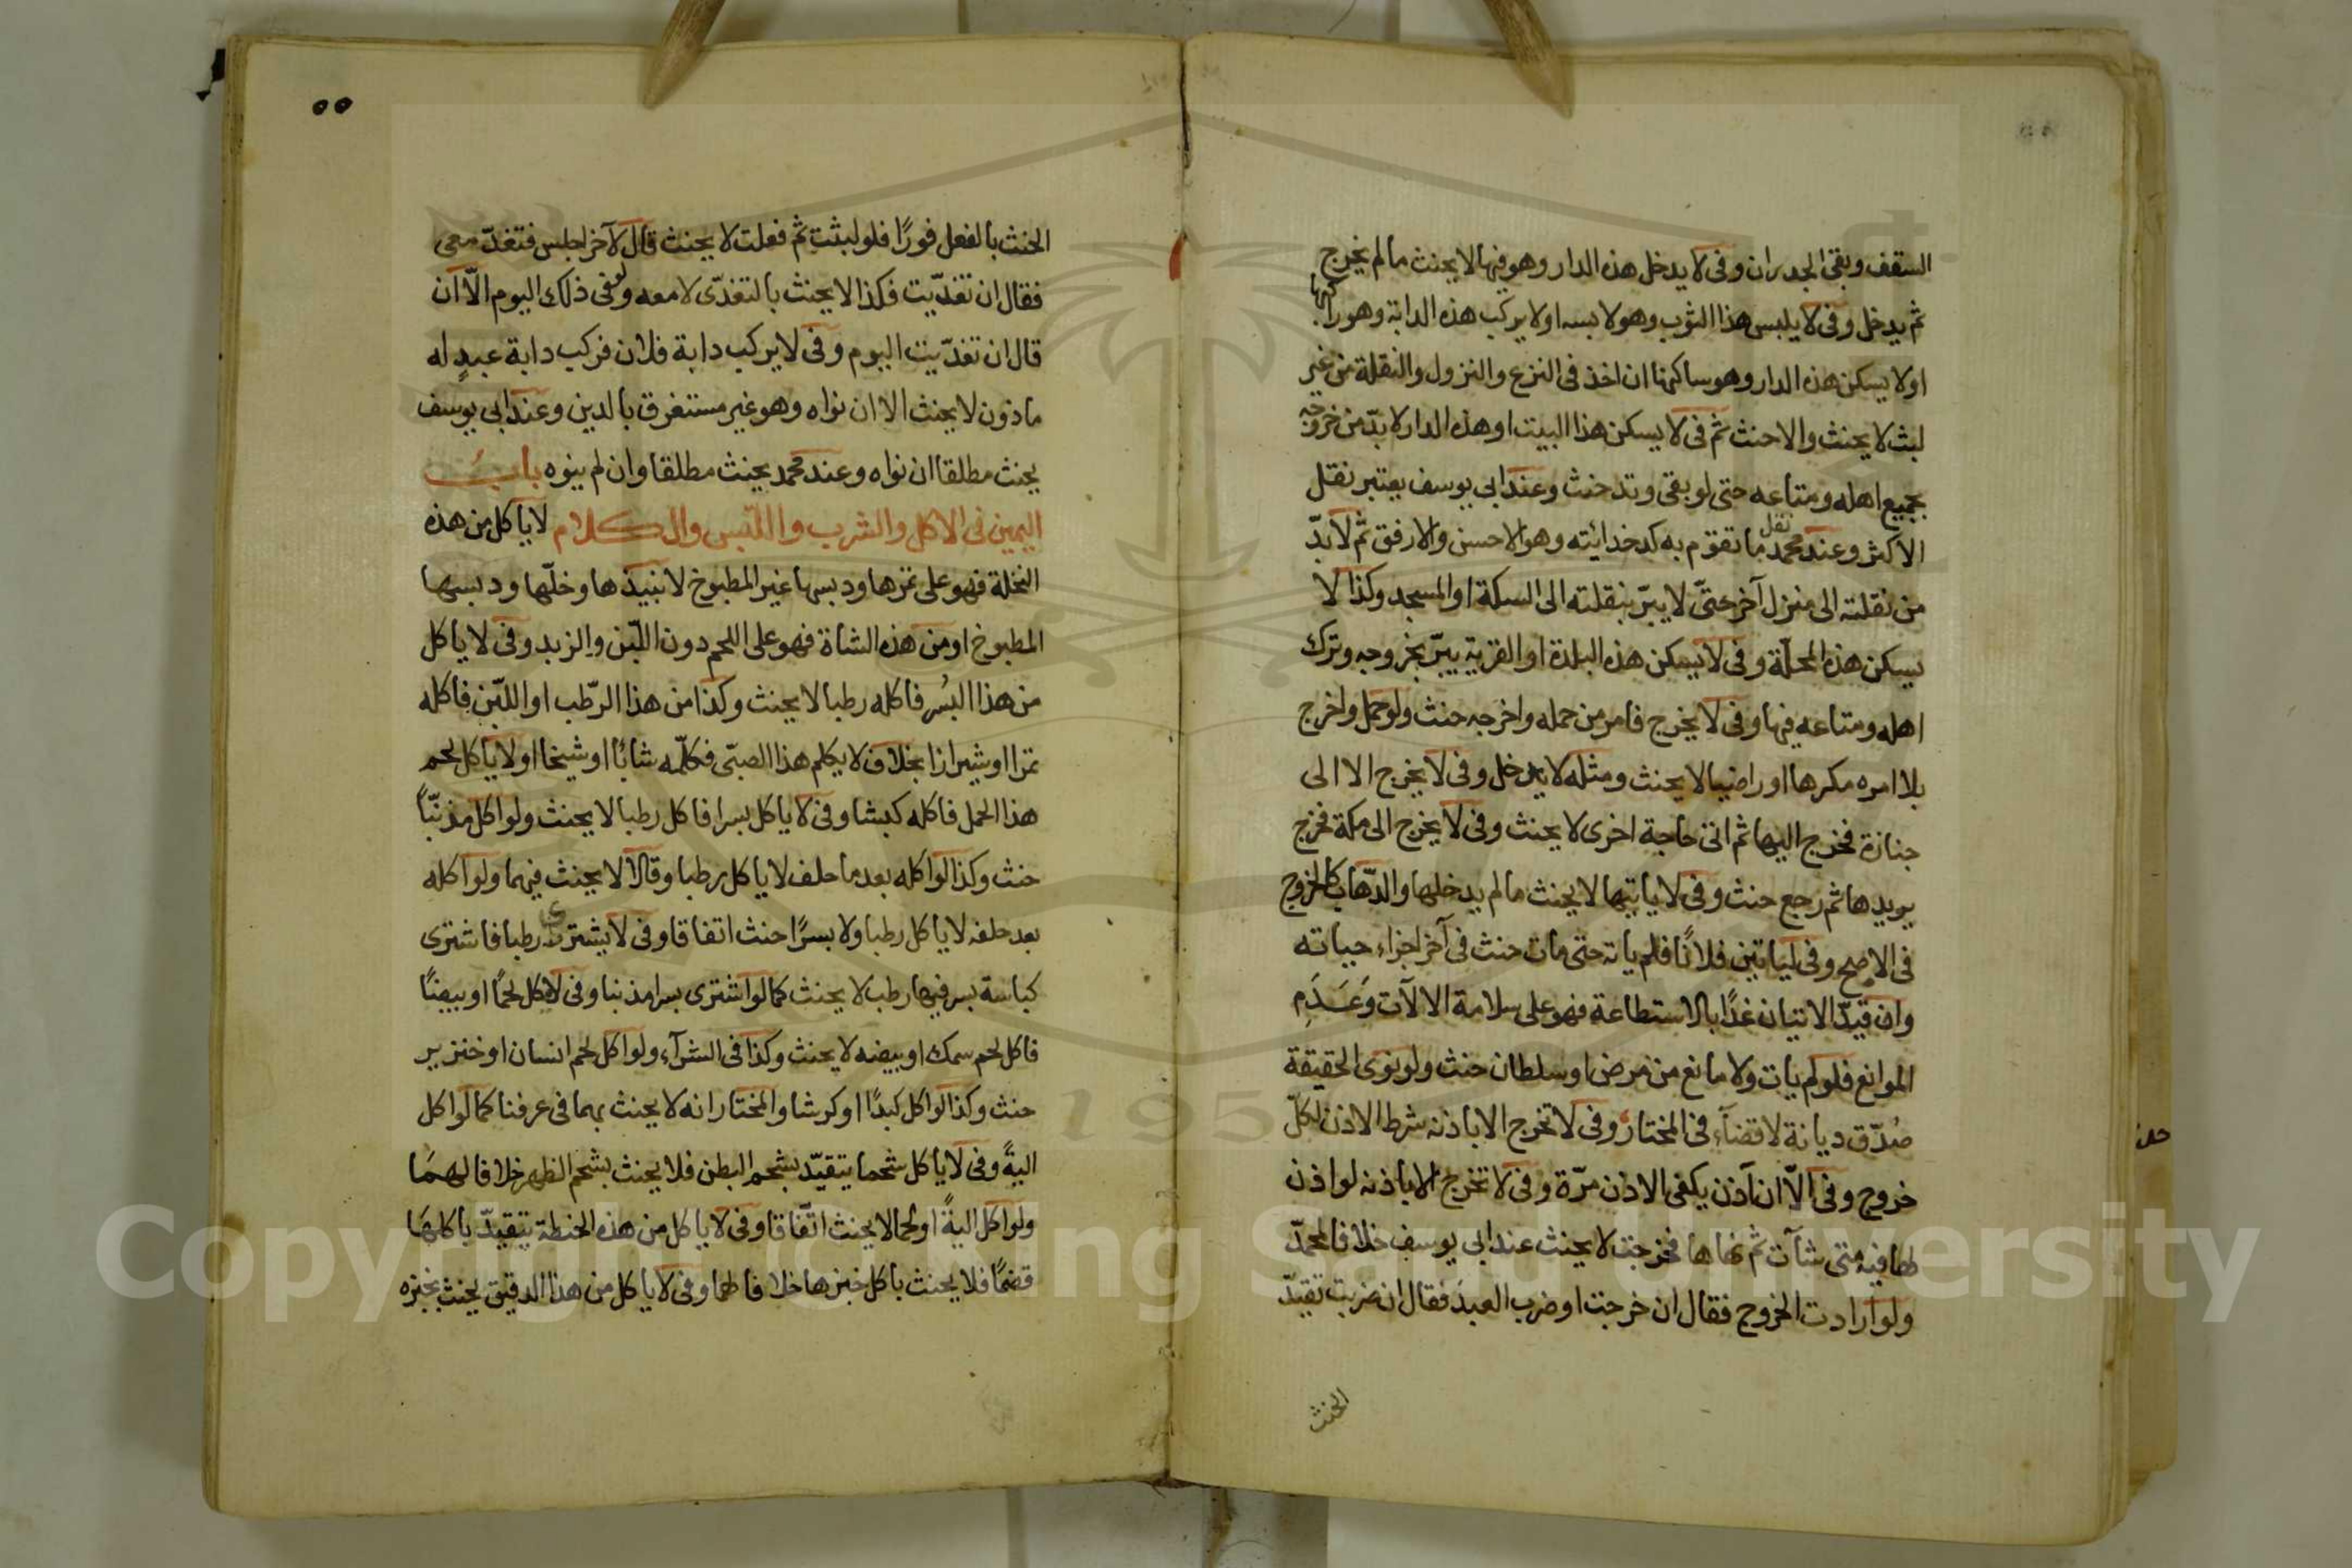 السقف وبقى الجدران وفى لا يدخل هذه الدار وهو فيها لا يحنث ما لم يخرج
ثم يدخل وفى لا يلبس هذا الثوب وهو لابسه اولا يركب هذه الدابة وهو راكبها
اولا يسكن هذه الدار وهو ساكنها ان اخذ فى النزع والنزول والنقلة من غير
لبث لا يحنث والا حنث ثم فى لا يسكن هذا البيت او هذه الدار لا بدّ من خروجه
بجميع اهله ومتاعه حتى لو بقى وتد حنث وعند ابى يوسف يعتبر نقل
الاكثر وعند محمد نقل ما تقوم به كدخدائيته وهو الاحسن والارفق ثم لا بدّ
من نقلته الى منزل آخر حتّى لا يبرّ بنقلته الى السكة او المسجد وكذا لا
يسكن هذه المحلّة وفى لا يسكن هذه البلدة او القرية يبرّ بخروجه وترك
اهله ومتاعه فيها وفى لا يخرج فامر من حمله واخرجه حنث ولو حمل واخرج
بلا امره مكرها او راضيا لا يحنث ومثله لا يدخل وفى لا يخرج الا الى
جنازة فخرج اليها ثم اتى حاجة اخرى لا يحنث وفى لا يخرج الى مكة فخرج
يريدها ثم رجع حنث وفى لا ياتيها لا يحنث ما لم يدخلها والذّهاب كالخروج
فى الاصح وفى لياتين فلانًا فلم ياته حتى مات حنث فى آخر اجزاء حياته
وان قيدّ الاتيان غدًا بالاستطاعة فهو على سلامة الالآت وَعَدَمِ
الموانع فلو لم يات ولا مانع من مرض او سلطان حنث ولو نوى الحقيقة
صُدّق ديانة لا قضآء فى المختار وفى لا تخرج الا باذنه شرط الاذن لكلّ
خروج وفى الاّ ان آذن يكفى الاذن مرّة وفى لا تخرج الا باذنه لو اذن
لها فيه متى شآت ثم نهاها فخرجت لا يحنث عند ابى يوسف خلافا لمحمدّ
ولو ارادت الخروج فقال ان خرجت او ضرب العبدَ فقال ان ضربت تقيدّ
الحنث
٥٥
الحنث بالفعل فورًا فلو لبثت ثم فعلت لا يحنث قال لآخر اجلس فتغدّ معى
فقال ان تغدّيت فكذا لا يحنث بالتغدّى لا معه ولو فى ذلك اليوم الاّ ان
قال ان تغدّيت اليوم وفى لا يركب دابة فلان فركب دابة عبدٍ له
ماذون لا يحنث الا ان نواه وهو غير مستغرق بالدين وعند ابى يوسف
يحنث مطلقا ان نواه وعند محمد يحنث مطلقا وان لم ينوه بابُ
اليمين فى الاكل والشرب واللّبس والكلام لا ياكل من هذه
النخلة فهو على تمرها ودبسها غير المطبوخ لا نبيذها وخلّها ودبسها
المطبوخ او من هذه الشاة فهو على اللحم دون اللّبن والزبد وفى لا ياكل
من هذا البُسر فاكله رطبا لا يحنث وكذا من هذا الرّطب او اللبّن فاكله
تمرا او شيرازا بخلاف لا يكلم هذا الصبّى فكلّمه شابّا او شيخا اولا ياكل لحم
هذا الحمل فاكله كبشا وفى لا ياكل بسرا فاكل رطبا لا يحنث ولو اكل مذنّبًا
حنث وكذا لو اكله بعد ما حلف لا ياكل رطبا وقالا لا يحنث فيهما ولو اكله
بعد حلفه لا ياكل رطبا ولا بسرًا حنث اتفاقا وفى لا يشترى رطبا فاشترى
كباسة بسر فيها رطب لا يحنث كما لو اشترى بسرا مذنبا وفى لا ياكل لحمًا او بيضًا
فاكل لحم سمك او بيضه لا يحنث وكذا فى الشرآء ولو اكل لحم انسان او خنزير
حنث وكذا لو اكل كبدًا او كرشا والمختار انه لا يحنث بهما فى عرفنا كما لو اكل
اليةً وفى لا ياكل شحما يتقيّد بشحم البطن فلا يحنث بشحم الظهر خلافا لهمَا
ولو اكل اليةً او لحما لا يحنث اتّفاقا وفى لا ياكل من هذه الحنطة يتقيدّ باكلهَا
قضمًا فلا يحنث باكل خبزها خلافا لهما وفى لا ياكل من هذا الدقيق يحنث بخبزه
Copyright © King Saud University